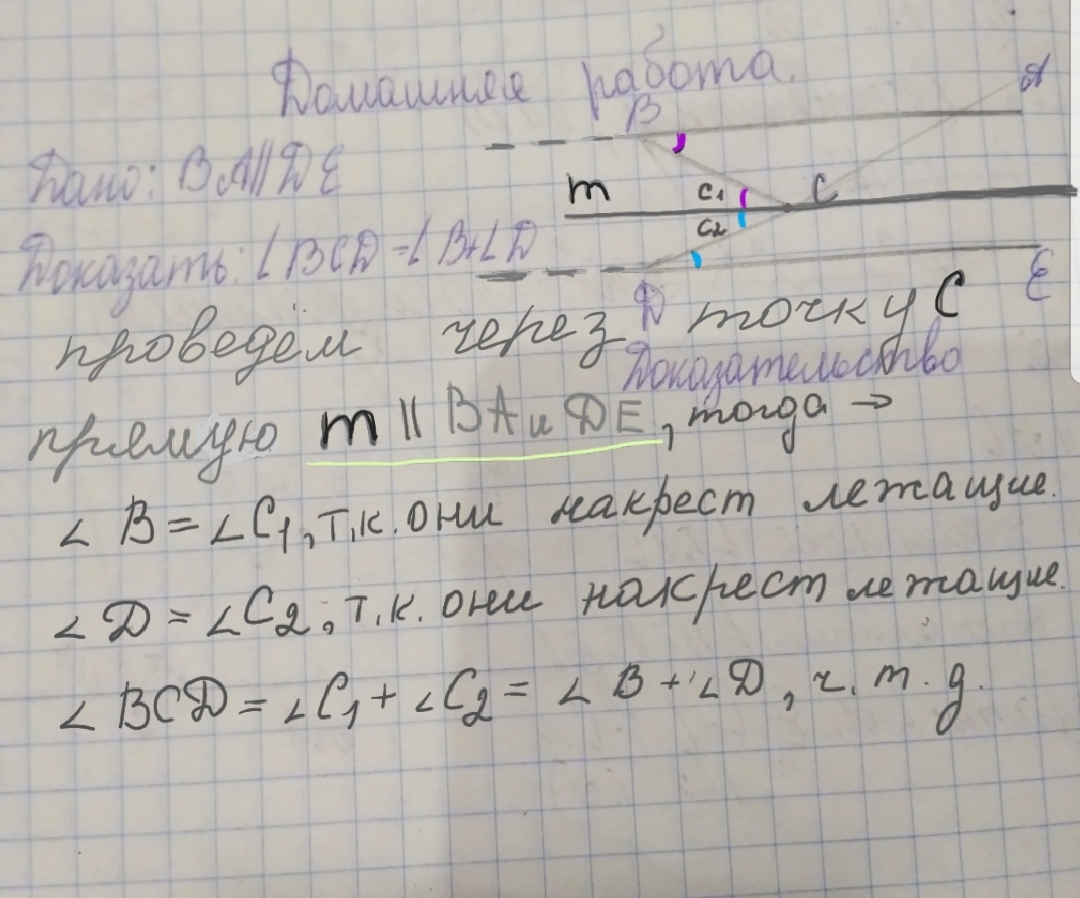 Домашняя работа.
B
A
Дано: BA || DE
m
C1
C
C2
Доказать: ∠BCD = ∠B+∠D
Д
E
проведём через точку C
Доказательство
прямую m || BA и DE, тогда →
∠B = ∠C1, т.к. они накрест лежащие.
∠D = ∠C2, т.к. они накрест лежащие.
∠BCD = ∠C1 + ∠C2 = ∠B + ∠D, ч. т. д.